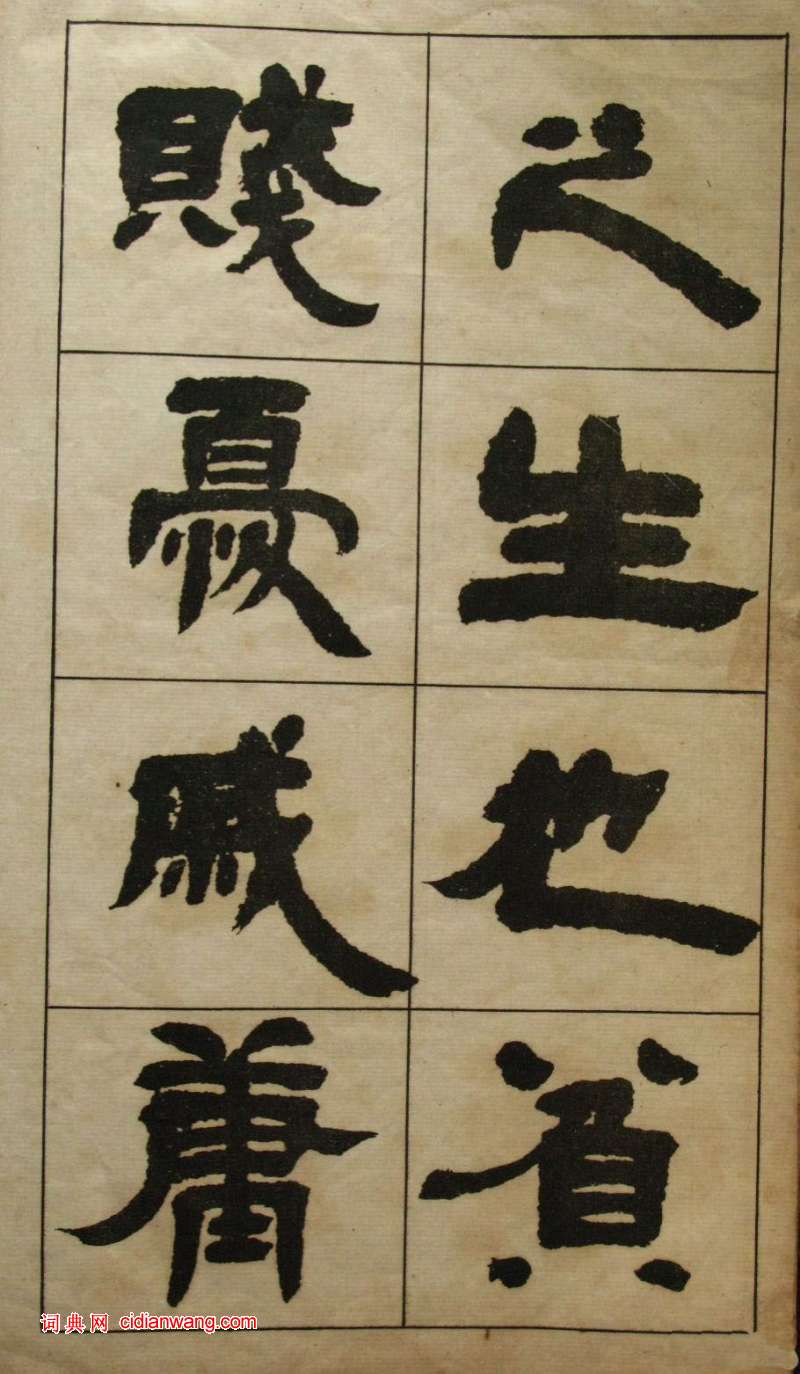 之生也貧
賤憂戚庸
词典网 cidianwang.com